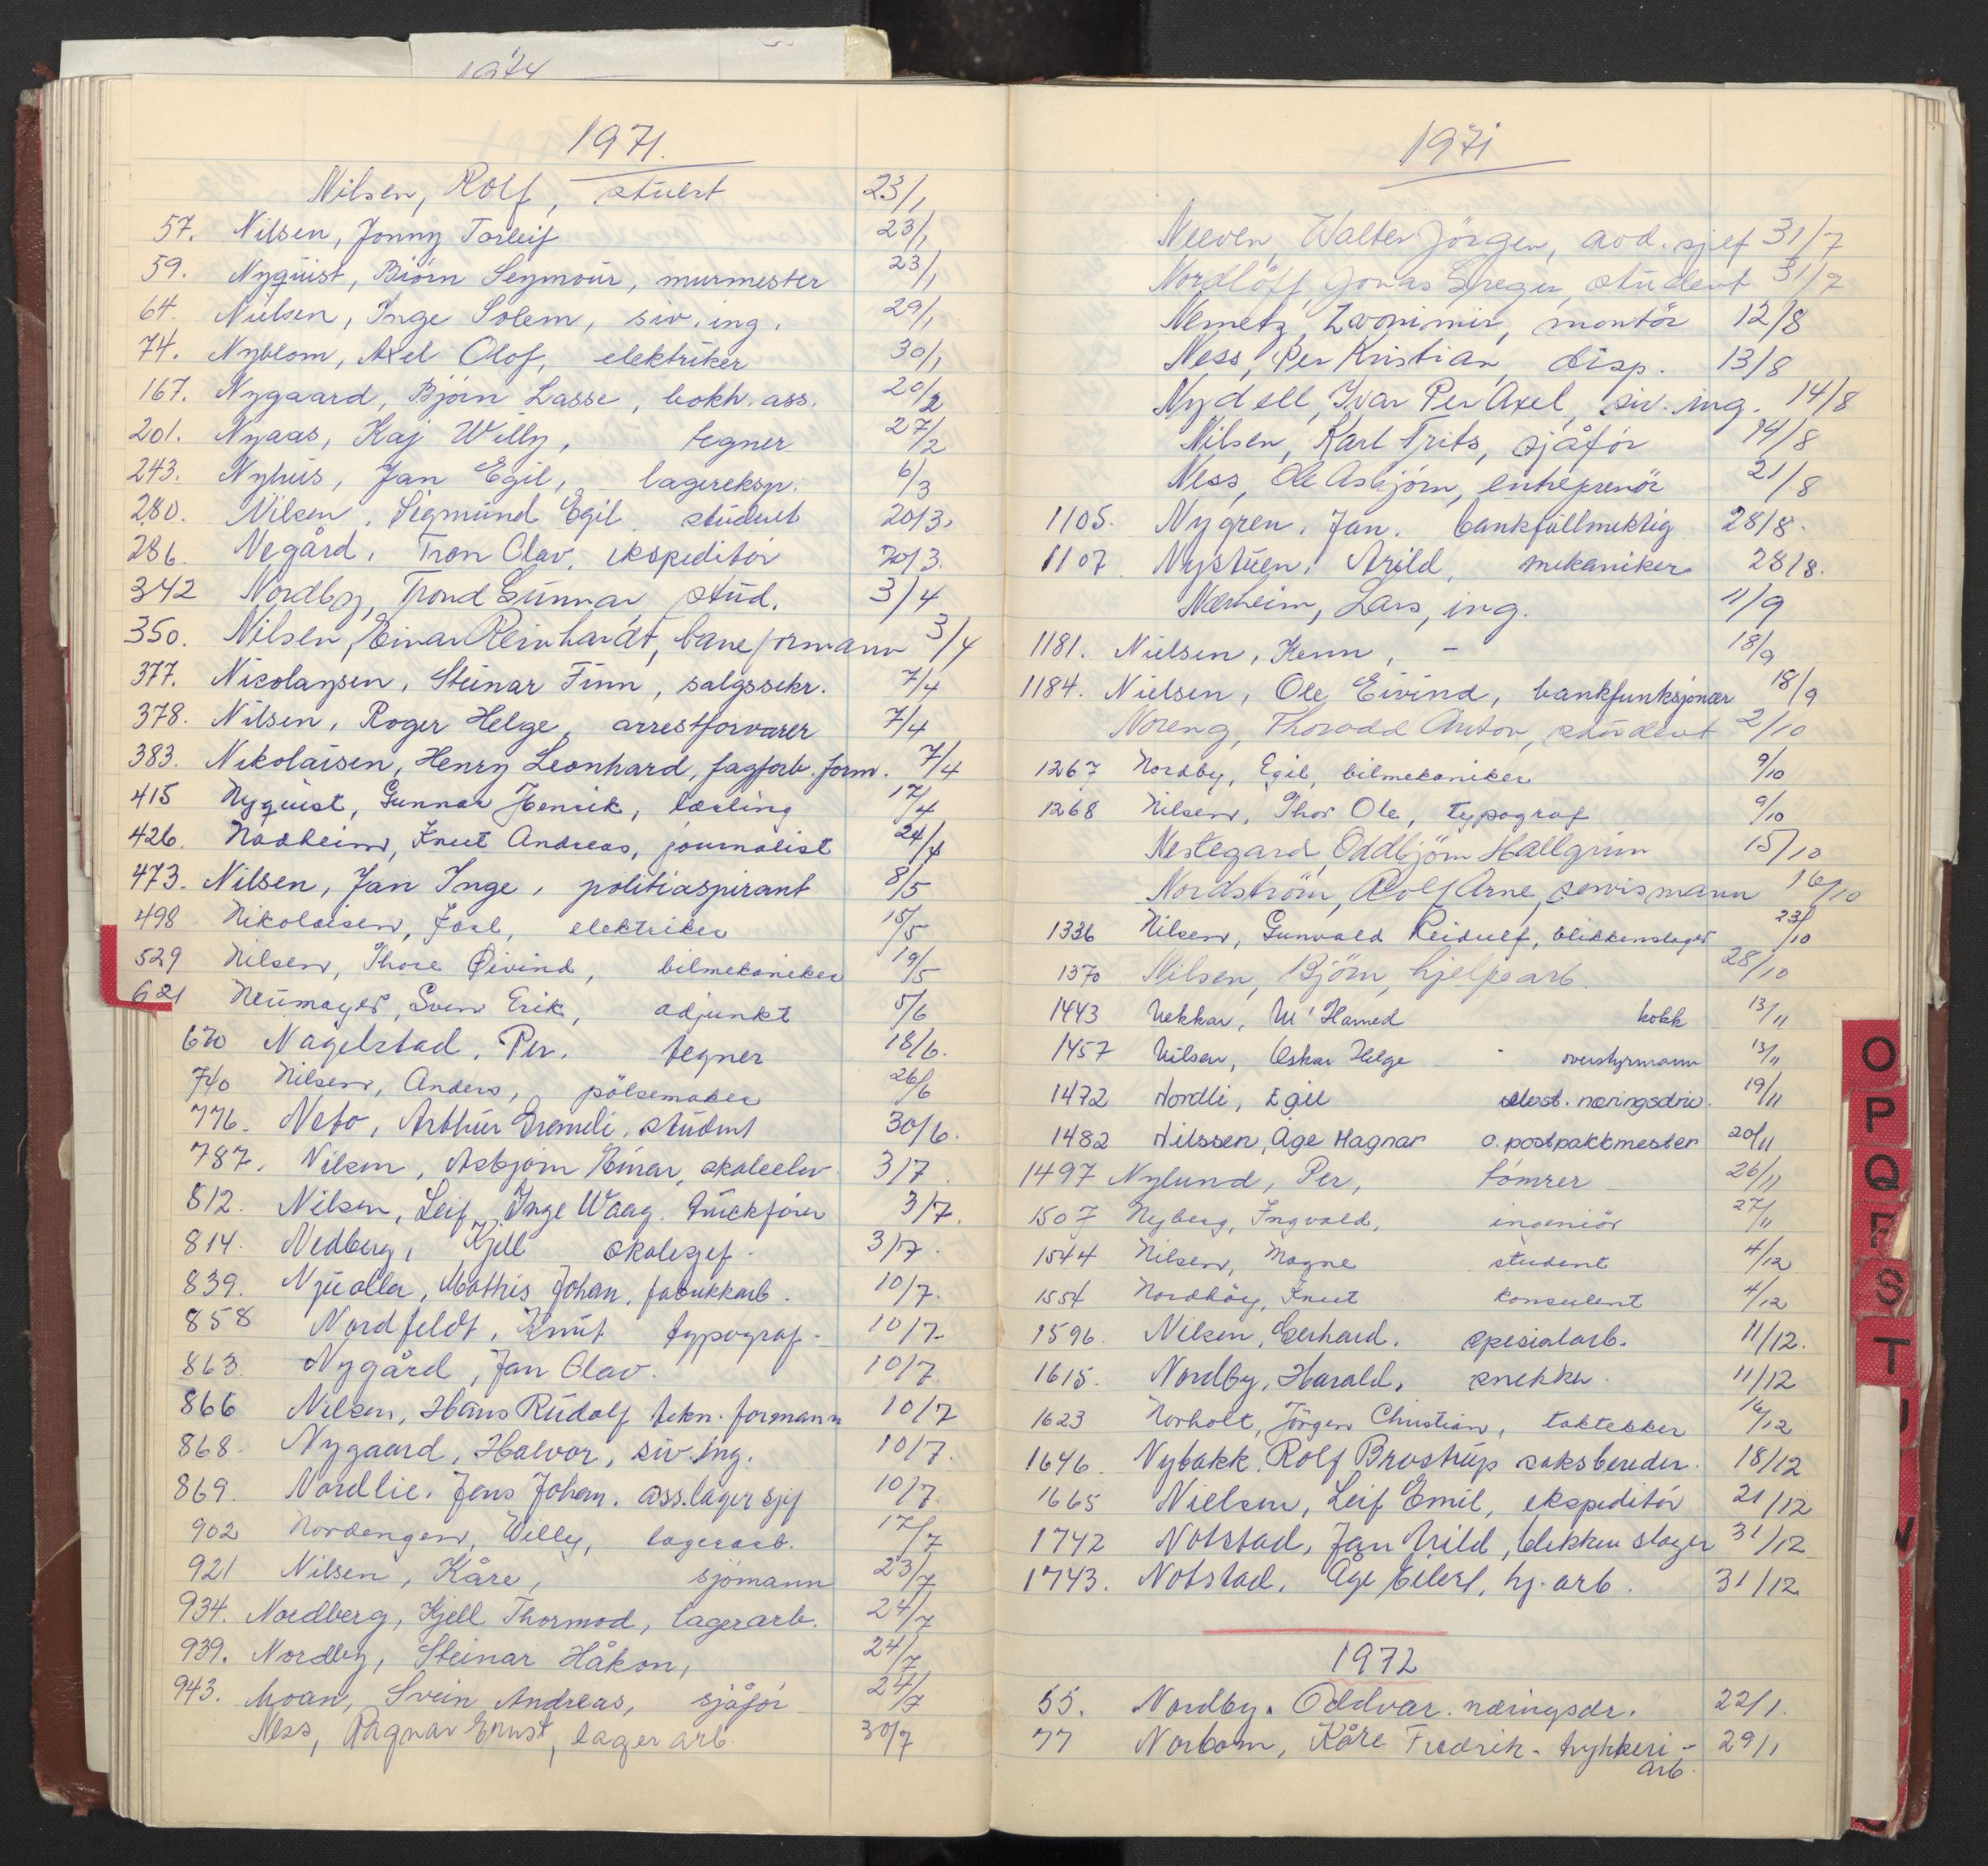 1974
1971.
Nilsen, Rolf, stuert 23/1
57. Nilsen, Jonny Torleif 23/1
59. Nyquist, Biørn Seymour, murmester 23/1
64. Nielsen, Inge Solem, siv. ing. 29/1
74. Nyblom, Axel Olof, elektriker 30/1
167. Nygaard, Bjørn Lasse, bokh. ass. 20/2
201. Nyaas, Kaj Willy, tegner 27/2
243. Nyhus, Jan Egil, lagereksp. 6/3
280. Nilsen, Sigmund Egil, student 20/3.
286. Negård, Tron Olav, ekspeditör 20/3.
342 Nordby, Trond Gunnar, stud. 3/4
350. Nilsen, Einar Reinhardt, baneformann 3/4
377. Nicolaysen, Steinar Finn, salgssekr. 7/4
378. Nilsen, Roger Helge, arrestforvarer 7/4
383. Nikolaisen, Henry Leonhard, fagforb. form. 7/4
415 Nyquist, Gunnar Henrik, lærling 17/4
426. Nodheim, Knut Andreas, journalist 24/4
473. Nilsen, Jan Inge, politiaspirant 8/5
498 Nikolaisen, Karl, elektriker 15/5
529 Nilsen, Thore Øivind, bilmekaniker 19/5
621 Neumayer, Sven Erik, adjunkt 5/6
670 Nagelstad, Per. tegner 18/6.
740 Nilsen, Anders, pölsemaker 26/6
776. Neto, Arthur, student 30/6.
787. Nilsen, Asbjørn Einar, skoleelev. 3/7
812. Nilsen, Leif Inge Waag. truckförer 3/7.
814. Nedberg, Kjell skolesjef. 3/7.
839. Njuolla, Mathis Johan, fabrikkarb. 10/7.
858 Nordfeldt, Knut typograf. 10/7
863. Nygård, Jan Olav. 10/7.
866 Nilsen, Hans Rudolf tekn. formann 10/7
868. Nygaard, Halvor, siv. ing. 10/7.
869. Nordlie, Jens Johan. ass. lagersjef 10/7.
902 Nordengen, Willy, lagerarb. 17/7
921 Nilsen, Kåre, sjömann 23/7
934. Nordberg, Kjell Thormod, lagerarb. 24/7
939. Nordby, Steinar Håkon, 24/7
943. Moan, Svein Andreas, sjåför 24/7
Ness, Ragnar Ernst, lagerarb. 30/7
1971
Neeven, Walter Jörgen, avd. sjef 31/7
Nordlöff, Jonas Greger, student 31/7
Nemetz, Zvonimir, montör 12/8
Ness, Per Kristian, disp. 13/8
Nydell, Ivar Per Axel, siv. ing. 14/8
Nilsen, Karl Frits, sjåför 14/8
Ness, Ole Asbjörn, entreprenör 21/8
1105. Nygren, Jan. bankfullmektig 28/8.
1107 Nystuen, Arild, mekaniker 28/8.
Nærheim, Lars, ing. 11/9
1181. Nielsen, Kenn, - 18/9
1184. Nielsen, Ole Eivind, bankfunksjonær 18/9
Noreng, Thorodd Anton, student 2/10
1267 Nordby, Egil, bilmekaniker 9/10
1268 Nilsen, Thor Ole, typograf 9/10
Nestegard, Oddbjörn Hallgrim 15/10
Nordström, Rolf Arne, servismann 16/10
1336 Nilsen, Gunvald Reidulf, blikkenslager 23/10
1370 Nilsen, Björn, hjelpearb. 28/10
1443 Nekkar, M'Hamed kokk 13/11
1457 Nilsen, Oskar Helge - overstyrmann 13/11
1472 Nordli, Egil selvst. næringsdriv. 19/11
1482 Nilssen, Åge Magnar o. postpakkmester 20/11
1497 Nylund, Per, tömrer 26/11
1507 Nyberg, Ingvald, ingeniör 27/11
1544 Nilsen, Magne student 4/12
1554 Nordhöy, Knut konsulent 4/12
1596. Nilsen, Gerhard. spesialarb. 11/12.
1615. Nordby, Harald, snekker. 11/12
1623 Norholt, Jörgen Christian, taktekker 16/12
1646. Nybakk, Rolf Brostrup saksbereder. 18/12
1665 Nielsen, Leif Emil, ekspeditör 21/12
1742 Notstad, Jan Arild, blikkenslager 31/12
1743. Notstad, Åge Eilert, hj. arb. 31/12
1972
55. Nordby, Oddvar. næringsdr. 22/1.
77 Norbom, Kåre Fredrik - trykkeri- 29/1
arb.
O
P
Q
R
S
T
U
V